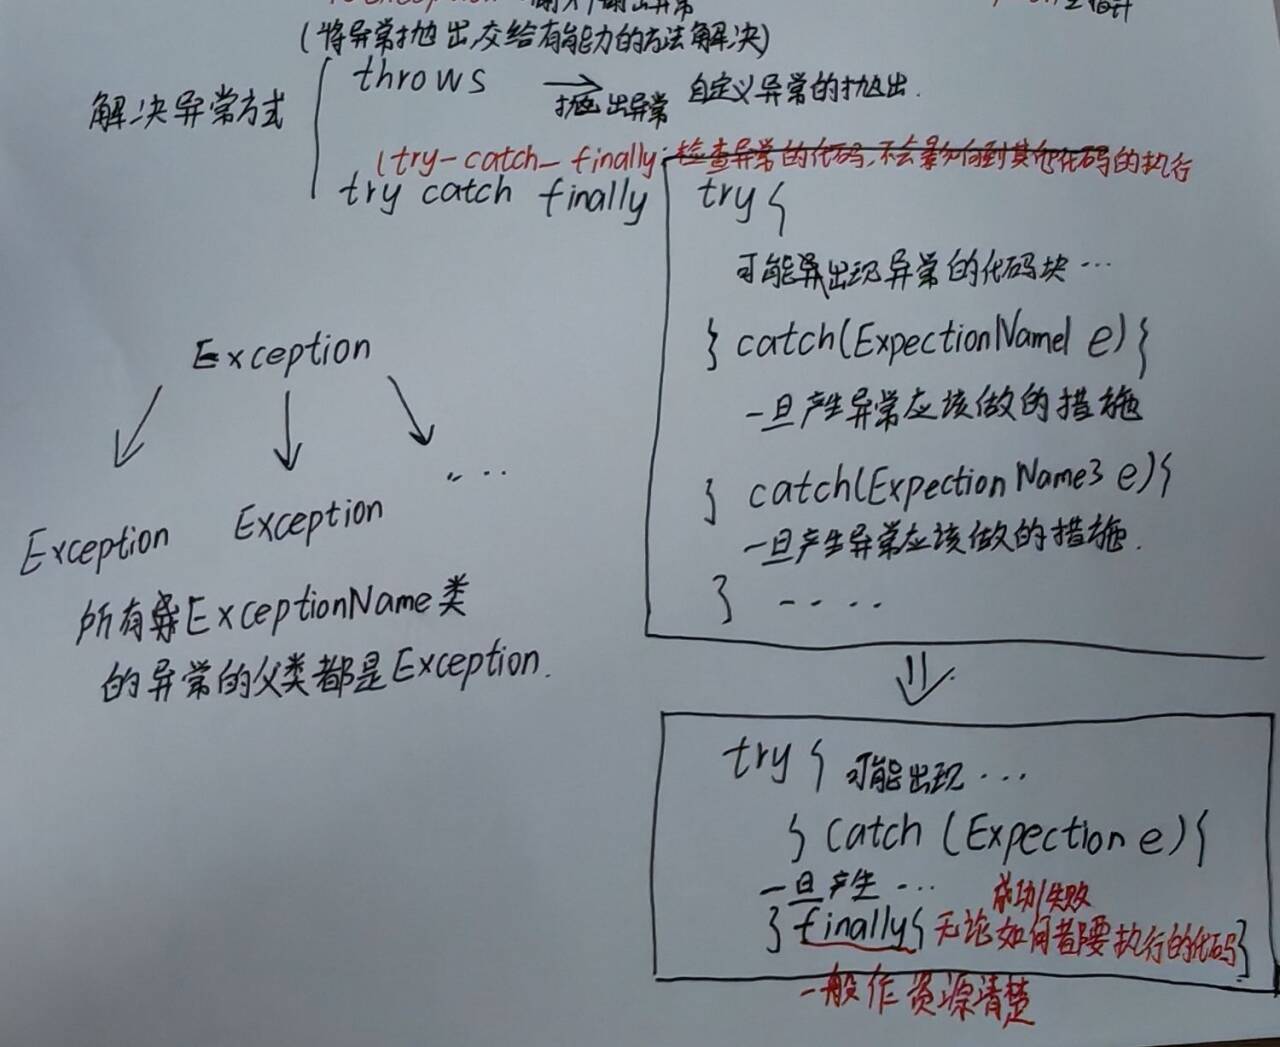 (将异常抛出,交给有能力的方法解决)
解决异常方式
throws
抛出异常
自定义异常的抛出.
(try-catch-finally:检查异常的代码,不会影响到其他代码的执行
try catch finally
try {
可能出现异常的代码块…
} catch(ExpectionName1 e){
一旦产生异常应该做的措施
} catch(ExpectionName3 e){
一旦产生异常应该做的措施.
} ----
Exception
....
Exception
Exception
所有ExceptionName类
的异常的父类都是Exception.
try { 可能出现…
} catch (Expection e){
一旦产生…
成功/失败
} finally{ 无论如何都要执行的代码}
一般作资源清楚